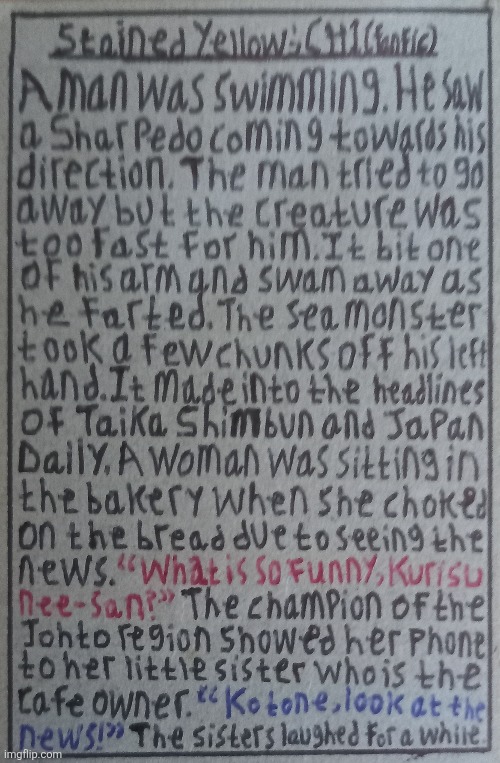 Stained Yellow: CH1 (fanfic)
A man was swimming. He saw
a Sharpedo coming towards his
direction. The man tried to go
away but the creature was
too fast for him. It bit one
of his arm and swam away as
he farted. The sea monster
took a few chunks off his left
hand. It made into the headlines
of Taika Shimbun and Japan
Daily. A woman was sitting in
the bakery when she choked
on the bread due to seeing the
news. "What is so funny, Kurisu
nee-san?" The champion of the
Johto region showed her phone
to her little sister who is the
cafe owner. "Kotone, look at the
news!" The sisters laughed for a while.
imgflip.com